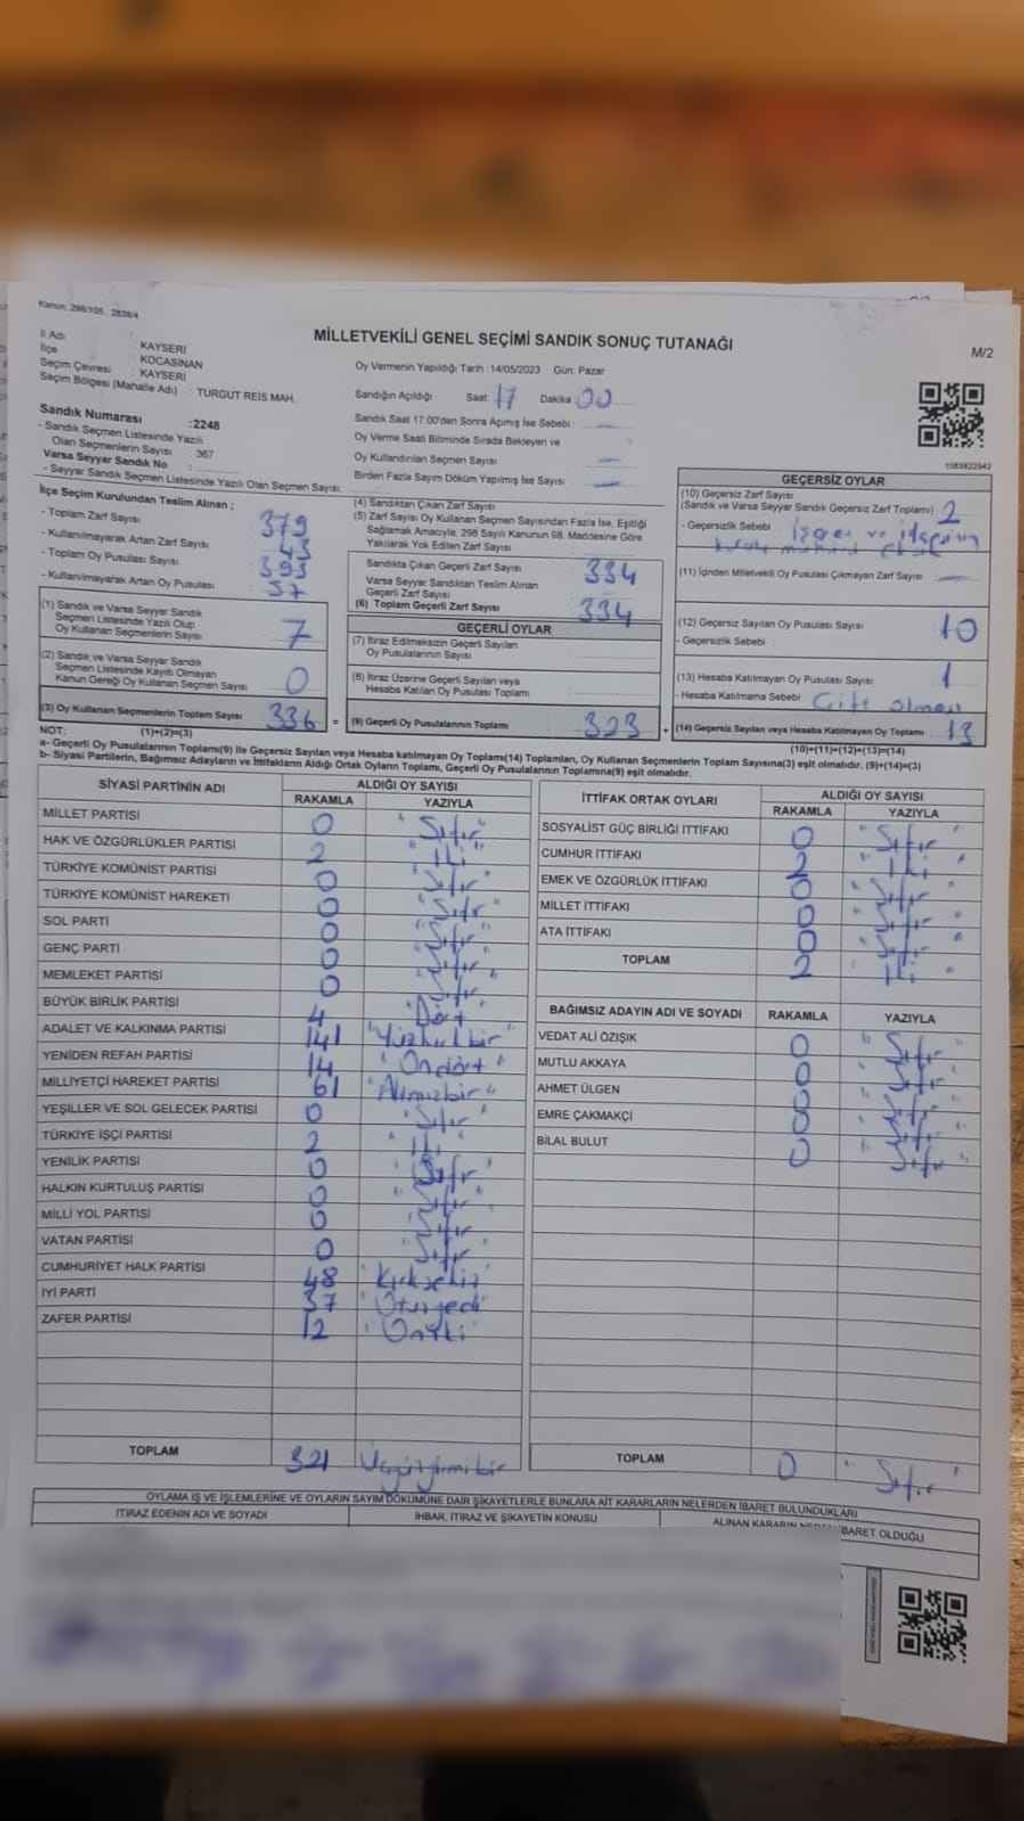 Kanun: 298/105 , 2839/4
MİLLETVEKİLİ GENEL SEÇİMİ SANDIK SONUÇ TUTANAĞI
M/2
İl Adı KAYSERİ
İlçe KOCASİNAN
Seçim Çevresi KAYSERİ
Seçim Bölgesi (Mahalle Adı) TURGUT REİS MAH.
Sandık Numarası :2248
- Sandık Seçmen Listesinde Yazılı
Olan Seçmenlerin Sayısı 367
Varsa Seyyar Sandık No :
- Seyyar Sandık Seçmen Listesinde Yazılı Olan Seçmen Sayısı:
Oy Vermenin Yapıldığı Tarih : 14/05/2023 Gün: Pazar
Sandığın Açıldığı Saat: 17 Dakika 00
Sandık Saat 17:00'den Sonra Açımış İse Sebebi :
Oy Verme Saati Bitiminde Sırada Bekleyen ve
Oy Kullandırılan Seçmen Sayısı
Birden Fazla Sayım Döküm Yapılmış İse Sayısı
İlçe Seçim Kurulundan Teslim Alınan :
- Toplam Zarf Sayısı 379
- Kullanılmayarak Artan Zarf Sayısı 43
- Toplam Oy Pusulası Sayısı 393
- Kullanılmayarak Artan Oy Pusulası 57
(1) Sandık ve Varsa Seyyar Sandık
Seçmen Listesinde Yazılı Olup
Oy Kullanan Seçmenlerin Sayısı 7
(2) Sandık ve Varsa Seyyar Sandık
Seçmen Listesinde Kayıtlı Olmayan
Kanun Gereği Oy Kullanan Seçmen Sayısı 0
(3) Oy Kullanan Seçmenlerin Toplam Sayısı 336 =
(1)+(2)=(3)
(4) Sandıktan Çıkan Zarf Sayısı
(5) Zarf Sayısı Oy Kullanan Seçmen Sayısından Fazla İse, Eşitliği
Sağlamak Amacıyla, 298 Sayılı Kanunun 98. Maddesine Göre
Yakılarak Yok Edilen Zarf Sayısı
Sandıkta Çıkan Geçerli Zarf Sayısı 334
Varsa Seyyar Sandıktan Teslim Alınan
Geçerli Zarf Sayısı
(6) Toplam Geçerli Zarf Sayısı 334
GEÇERLİ OYLAR
(7) İtiraz Edilmeksizin Geçerli Sayılan
Oy Pusulalarının Sayısı
(8) İtiraz Üzerine Geçerli Sayılan veya
Hesaba Katılan Oy Pusulası Toplamı
(9) Geçerli Oy Pusulalarının Toplamı 323 +
1083822942
GEÇERSİZ OYLAR
(10) Geçersiz Zarf Sayısı
(Sandık ve Varsa Seyyar Sandık Geçersiz Zarf Toplamı) 2
- Geçersizlik Sebebi
(11) İçinden Milletvekili Oy Pusulası Çıkmayan Zarf Sayısı
(12) Geçersiz Sayılan Oy Pusulası Sayısı 10
- Geçersizlik Sebebi
(13) Hesaba Katılmayan Oy Pusulası Sayısı 1
- Hesaba Katılmama Sebebi Çift olması
(14) Geçersiz Sayılan veya Hesaba Katılmayan Oy Toplamı 13
(10)+(11)+(12)+(13)=(14)
NOT:
a- Geçerli Oy Pusulalarının Toplamı(9) ile Geçersiz Sayılan veya Hesaba katılmayan Oy Toplamı(14) Toplamları, Oy Kullanan Seçmenlerin Toplam Sayısına(3) eşit olmalıdır. (9)+(14)=(3)
b- Siyasi Partilerin, Bağımsız Adayların ve İttifakların Aldığı Ortak Oyların Toplamı, Geçerli Oy Pusulalarının Toplamına(9) eşit olmalıdır.
SİYASİ PARTİNİN ADI ALDIĞI OY SAYISI
RAKAMLA YAZIYLA
MİLLET PARTİSİ 0 "Sıfır"
HAK VE ÖZGÜRLÜKLER PARTİSİ 2 "İki"
TÜRKİYE KOMÜNİST PARTİSİ 0 "Sıfır"
TÜRKİYE KOMÜNİST HAREKETİ 0 "Sıfır"
SOL PARTİ 0 "Sıfır"
GENÇ PARTİ 0 "Sıfır"
MEMLEKET PARTİSİ 0 "Sıfır"
BÜYÜK BİRLİK PARTİSİ 4 "Dört"
ADALET VE KALKINMA PARTİSİ 141 "Yüzkırkbir"
YENİDEN REFAH PARTİSİ 14 "Ondört"
MİLLİYETÇİ HAREKET PARTİSİ 61 "Altmışbir"
YEŞİLLER VE SOL GELECEK PARTİSİ 0 "Sıfır"
TÜRKİYE İŞÇİ PARTİSİ 2 "İki"
YENİLİK PARTİSİ 0 "Sıfır"
HALKIN KURTULUŞ PARTİSİ 0 "Sıfır"
MİLLİ YOL PARTİSİ 0 "Sıfır"
VATAN PARTİSİ 0 "Sıfır"
CUMHURİYET HALK PARTİSİ 48 "Kırksekiz"
İYİ PARTİ 37 "Otuzyedi"
ZAFER PARTİSİ 12 "Oniki"
TOPLAM 321 Üçyüzyirmibir
İTTİFAK ORTAK OYLARI ALDIĞI OY SAYISI
RAKAMLA YAZIYLA
SOSYALİST GÜÇ BİRLİĞİ İTTİFAKI 0 "Sıfır"
CUMHUR İTTİFAKI 2 "İki"
EMEK VE ÖZGÜRLÜK İTTİFAKI 0 "Sıfır"
MİLLET İTTİFAKI 0 "Sıfır"
ATA İTTİFAKI 0 "Sıfır"
TOPLAM 2 "İki"
BAĞIMSIZ ADAYIN ADI VE SOYADI RAKAMLA YAZIYLA
VEDAT ALİ ÖZIŞIK 0 "Sıfır"
MUTLU AKKAYA 0 "Sıfır"
AHMET ÜLGEN 0 "Sıfır"
EMRE ÇAKMAKÇİ 0 "Sıfır"
BİLAL BULUT 0 "Sıfır"
TOPLAM 0 "Sıfır"
OYLAMA İŞ VE İŞLEMLERİNE VE OYLARIN SAYIM DÖKÜMÜNE DAİR ŞİKAYETLERLE BUNLARA AİT KARARLARIN NELERDEN İBARET BULUNDUKLARI
İTİRAZ EDENİN ADI VE SOYADI İHBAR, İTİRAZ VE ŞİKAYETİN KONUSU ALINAN KARARIN İBARET OLDUĞU